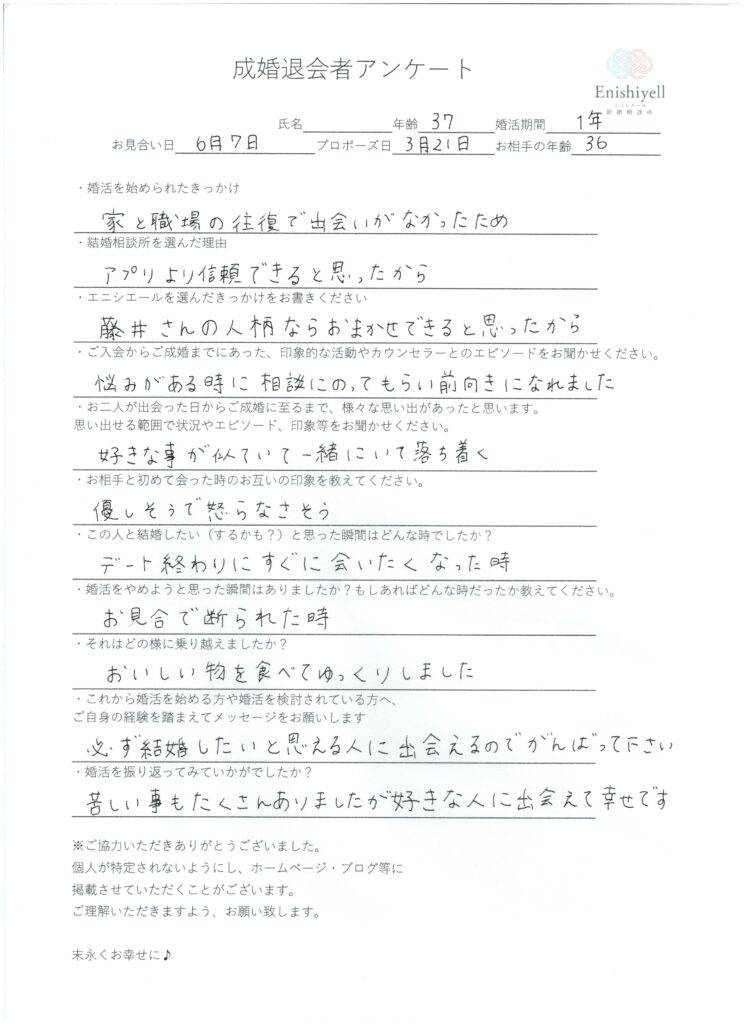 成婚退会者アンケート
Enishiyell
エニシエール
結婚相談所
氏名 年齢 37 婚活期間 1年
お見合い日 6月7日 プロポーズ日 3月21日 お相手の年齢 36
・婚活を始められたきっかけ
家と職場の往復で出会いがなかったため
・結婚相談所を選んだ理由
アプリより信頼できると思ったから
・エニシエールを選んだきっかけをお書きください
藤井さんの人柄ならおまかせできると思ったから
・ご入会からご成婚までにあった、印象的な活動やカウンセラーとのエピソードをお聞かせください。
悩みがある時に相談にのってもらい前向きになれました
・お二人が出会った日からご成婚に至るまで、様々な思い出があったと思います。
思い出せる範囲で状況やエピソード、印象等をお聞かせください。
好きな事が似ていて一緒にいて落ち着く
・お相手と初めて会った時のお互いの印象を教えてください。
優しそうで怒らなさそう
・この人と結婚したい（するかも？）と思った瞬間はどんな時でしたか？
デート終わりにすぐに会いたくなった時
・婚活をやめようと思った瞬間はありましたか？もしあればどんな時だったか教えてください。
お見合で断られた時
・それはどの様に乗り越えましたか？
おいしい物を食べてゆっくりしました
・これから婚活を始める方や婚活を検討されている方へ、
ご自身の経験を踏まえてメッセージをお願いします
必ず結婚したいと思える人に出会えるのでがんばって下さい
・婚活を振り返ってみていかがでしたか？
苦しい事もたくさんありましたが好きな人に出会えて幸せです
※ご協力いただきありがとうございました。
個人が特定されないようにし、ホームページ・ブログ等に
掲載させていただくことがございます。
ご理解いただきますよう、お願い致します。
末永くお幸せに♪